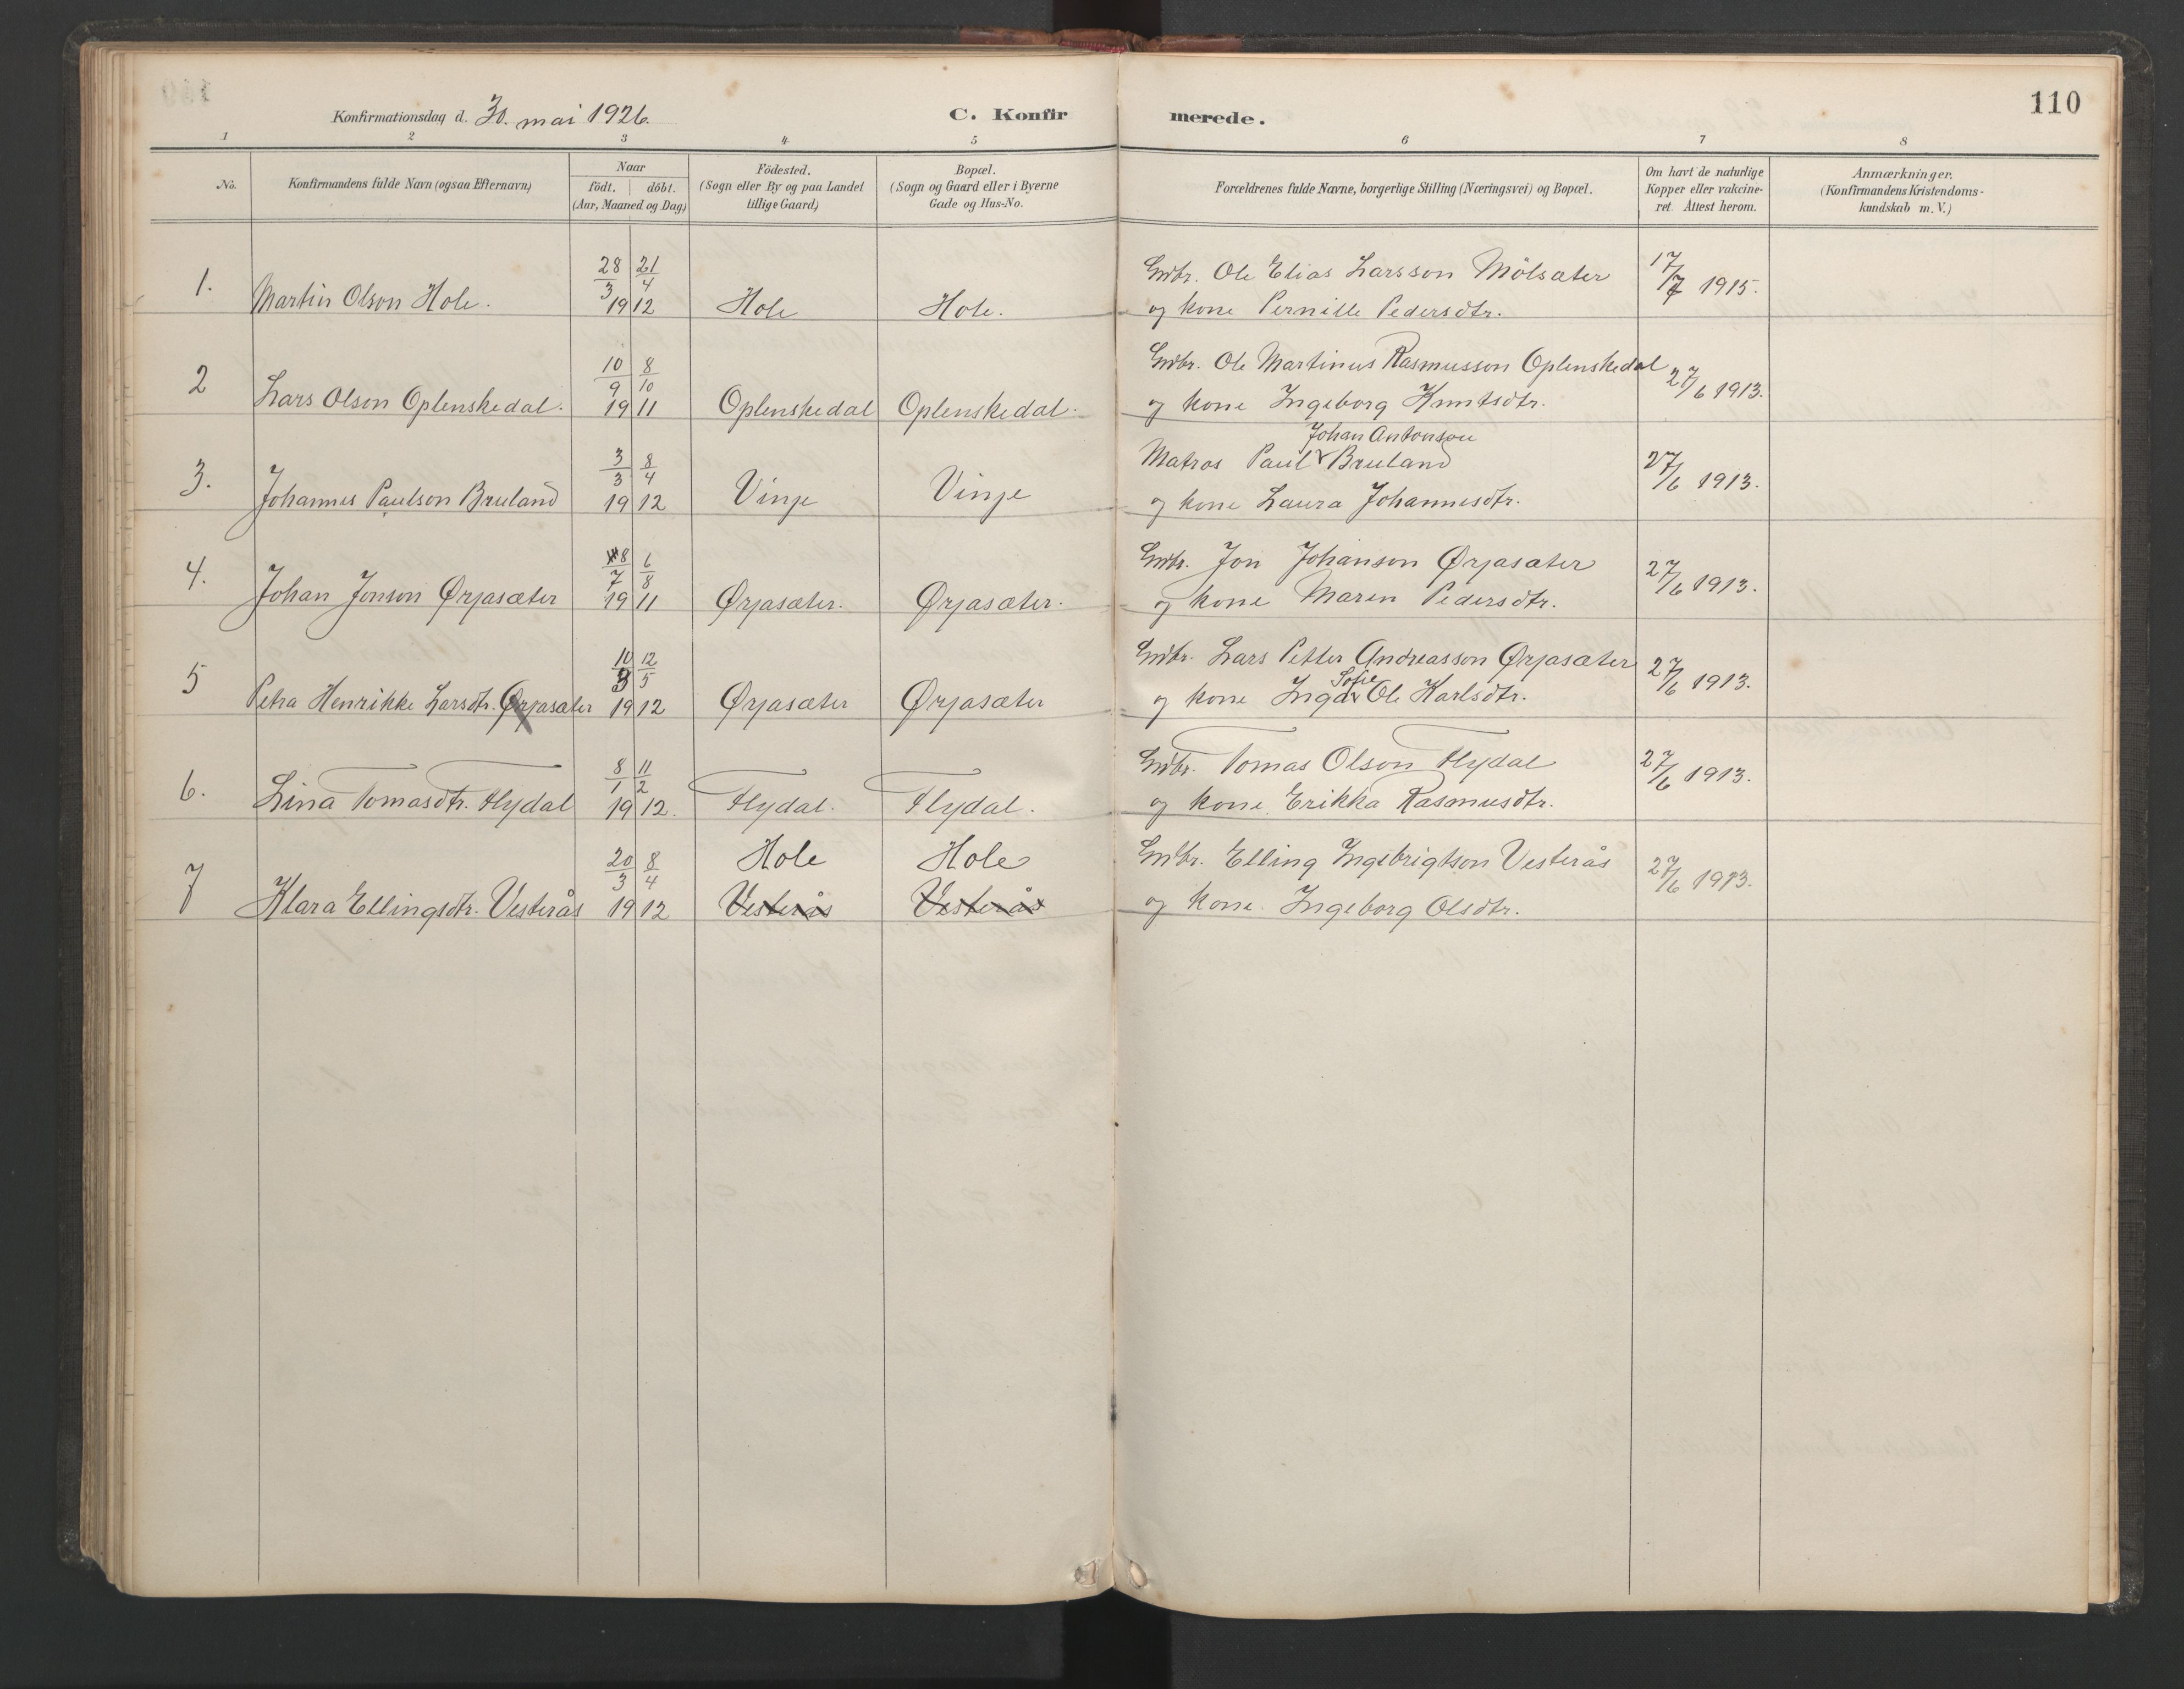 110
Konfirmationsdag d. 30. mai 1926.
C. Konfirmerede.
1 2 3 4 5 6 7 8
No.
Konfirmandens fulde Navn (ogsaa Efternavn)
Naar
födt. döbt.
(Aar, Maaned og Dag)
Födested.
(Sogn eller By og paa Landet
tillige Gaard)
Bopæl.
(Sogn og Gaard eller i Byerne
Gade og Hus-No.
Forældrenes fulde Navne, borgerlige Stilling (Næringsvei) og Bopæl.
Om havt de naturlige
Kopper eller vakcine-
ret. Attest herom.
Anmærkninger.
(Konfirmandens Kristendoms-
kundskab m. V.)
1. Martin Olson Hole. 28/3 1912 21/4 Hole Hole. Grdbr. Ole Elias Larsson Mölsæter 17/7 1915.
og kone Pernille Pedersdtr.
2 Lars Olson Oplenskedal. 10/9 1911 8/10 Oplenskedal Oplenskedal. Grdbr. Ole Martinus Rasmusson Oplenskedal 27/6 1913.
og kone Ingeborg Knutsdtr.
Johan Antonson
3. Johannes Paulson Bruland 3/3 1912 8/4 Vinje Vinje Matros Paul Bruland 27/6 1913.
og kone Laura Johannesdtr.
4. Johan Jonson Ørjasæter 8/7 1911 6/8 Ørjasæter. Ørjasæter. Grdbr. Jon Johanson Ørjasæter 27/6 1913.
og kone Maren Pedersdtr.
5 Petra Henrikke Larsdtr. Ørjasæter 10/3 1912 12/5 Ørjasæter Ørjasæter Grdbr. Lars Petter Andreasson Ørjasæter 27/6 1913.
Sofie
og kone Inga Ole Karlsdtr.
6. Lina Tomasdtr. Flydal 8/1 1912. 11/2 Flydal. Flydal. Grdbr. Tomas Olson Flydal 27/6 1913.
og kone Erikka Rasmusdtr.
Hole Hole
7 Klara Ellingsdtr. Vesterås 20/3 1912 8/4 Vesterås Vesterås Grdbr. Elling Ingebrigtson Vesterås 27/6 1913.
og kone Ingeborg Olsdtr.